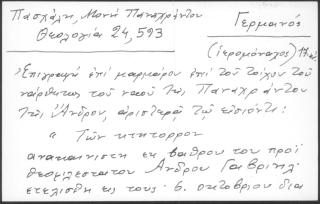 Πασχάλη, Μονή Παναχράντου
Θεολογία 24, 593
Γερμανός
(ἱερομόναχος) 17 αἰ.
Ἐπιγραφή ἐπί μαρμάρου ἐπί τοῦ τοίχου τοῦ
νάρθηκος τοῦ ναοῦ τῆς Παναχράντου
τῆς Ἄνδρου, ἀριστερᾷ τῷ εἰσιόντι:
" Τῶν κτητορρον
ανακαινιστη εκ βαθρου του προϊ
θεοφιλεστατου Ανδρου Γαβριηλ
ετελισθη εις τους · 6. οκτοβριου δια